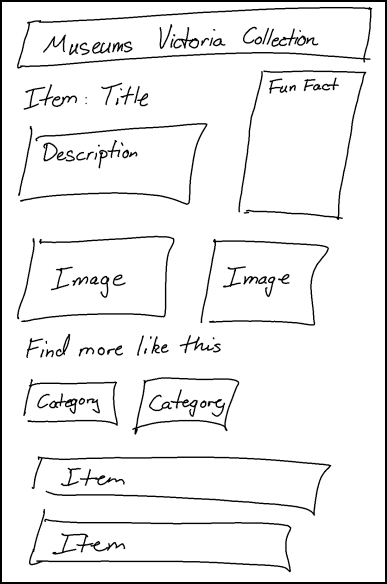 Museums Victoria Collection
Item: Title
Fun Fact
Description
Image
Image
Find more like this
Category
Category
Item
Item